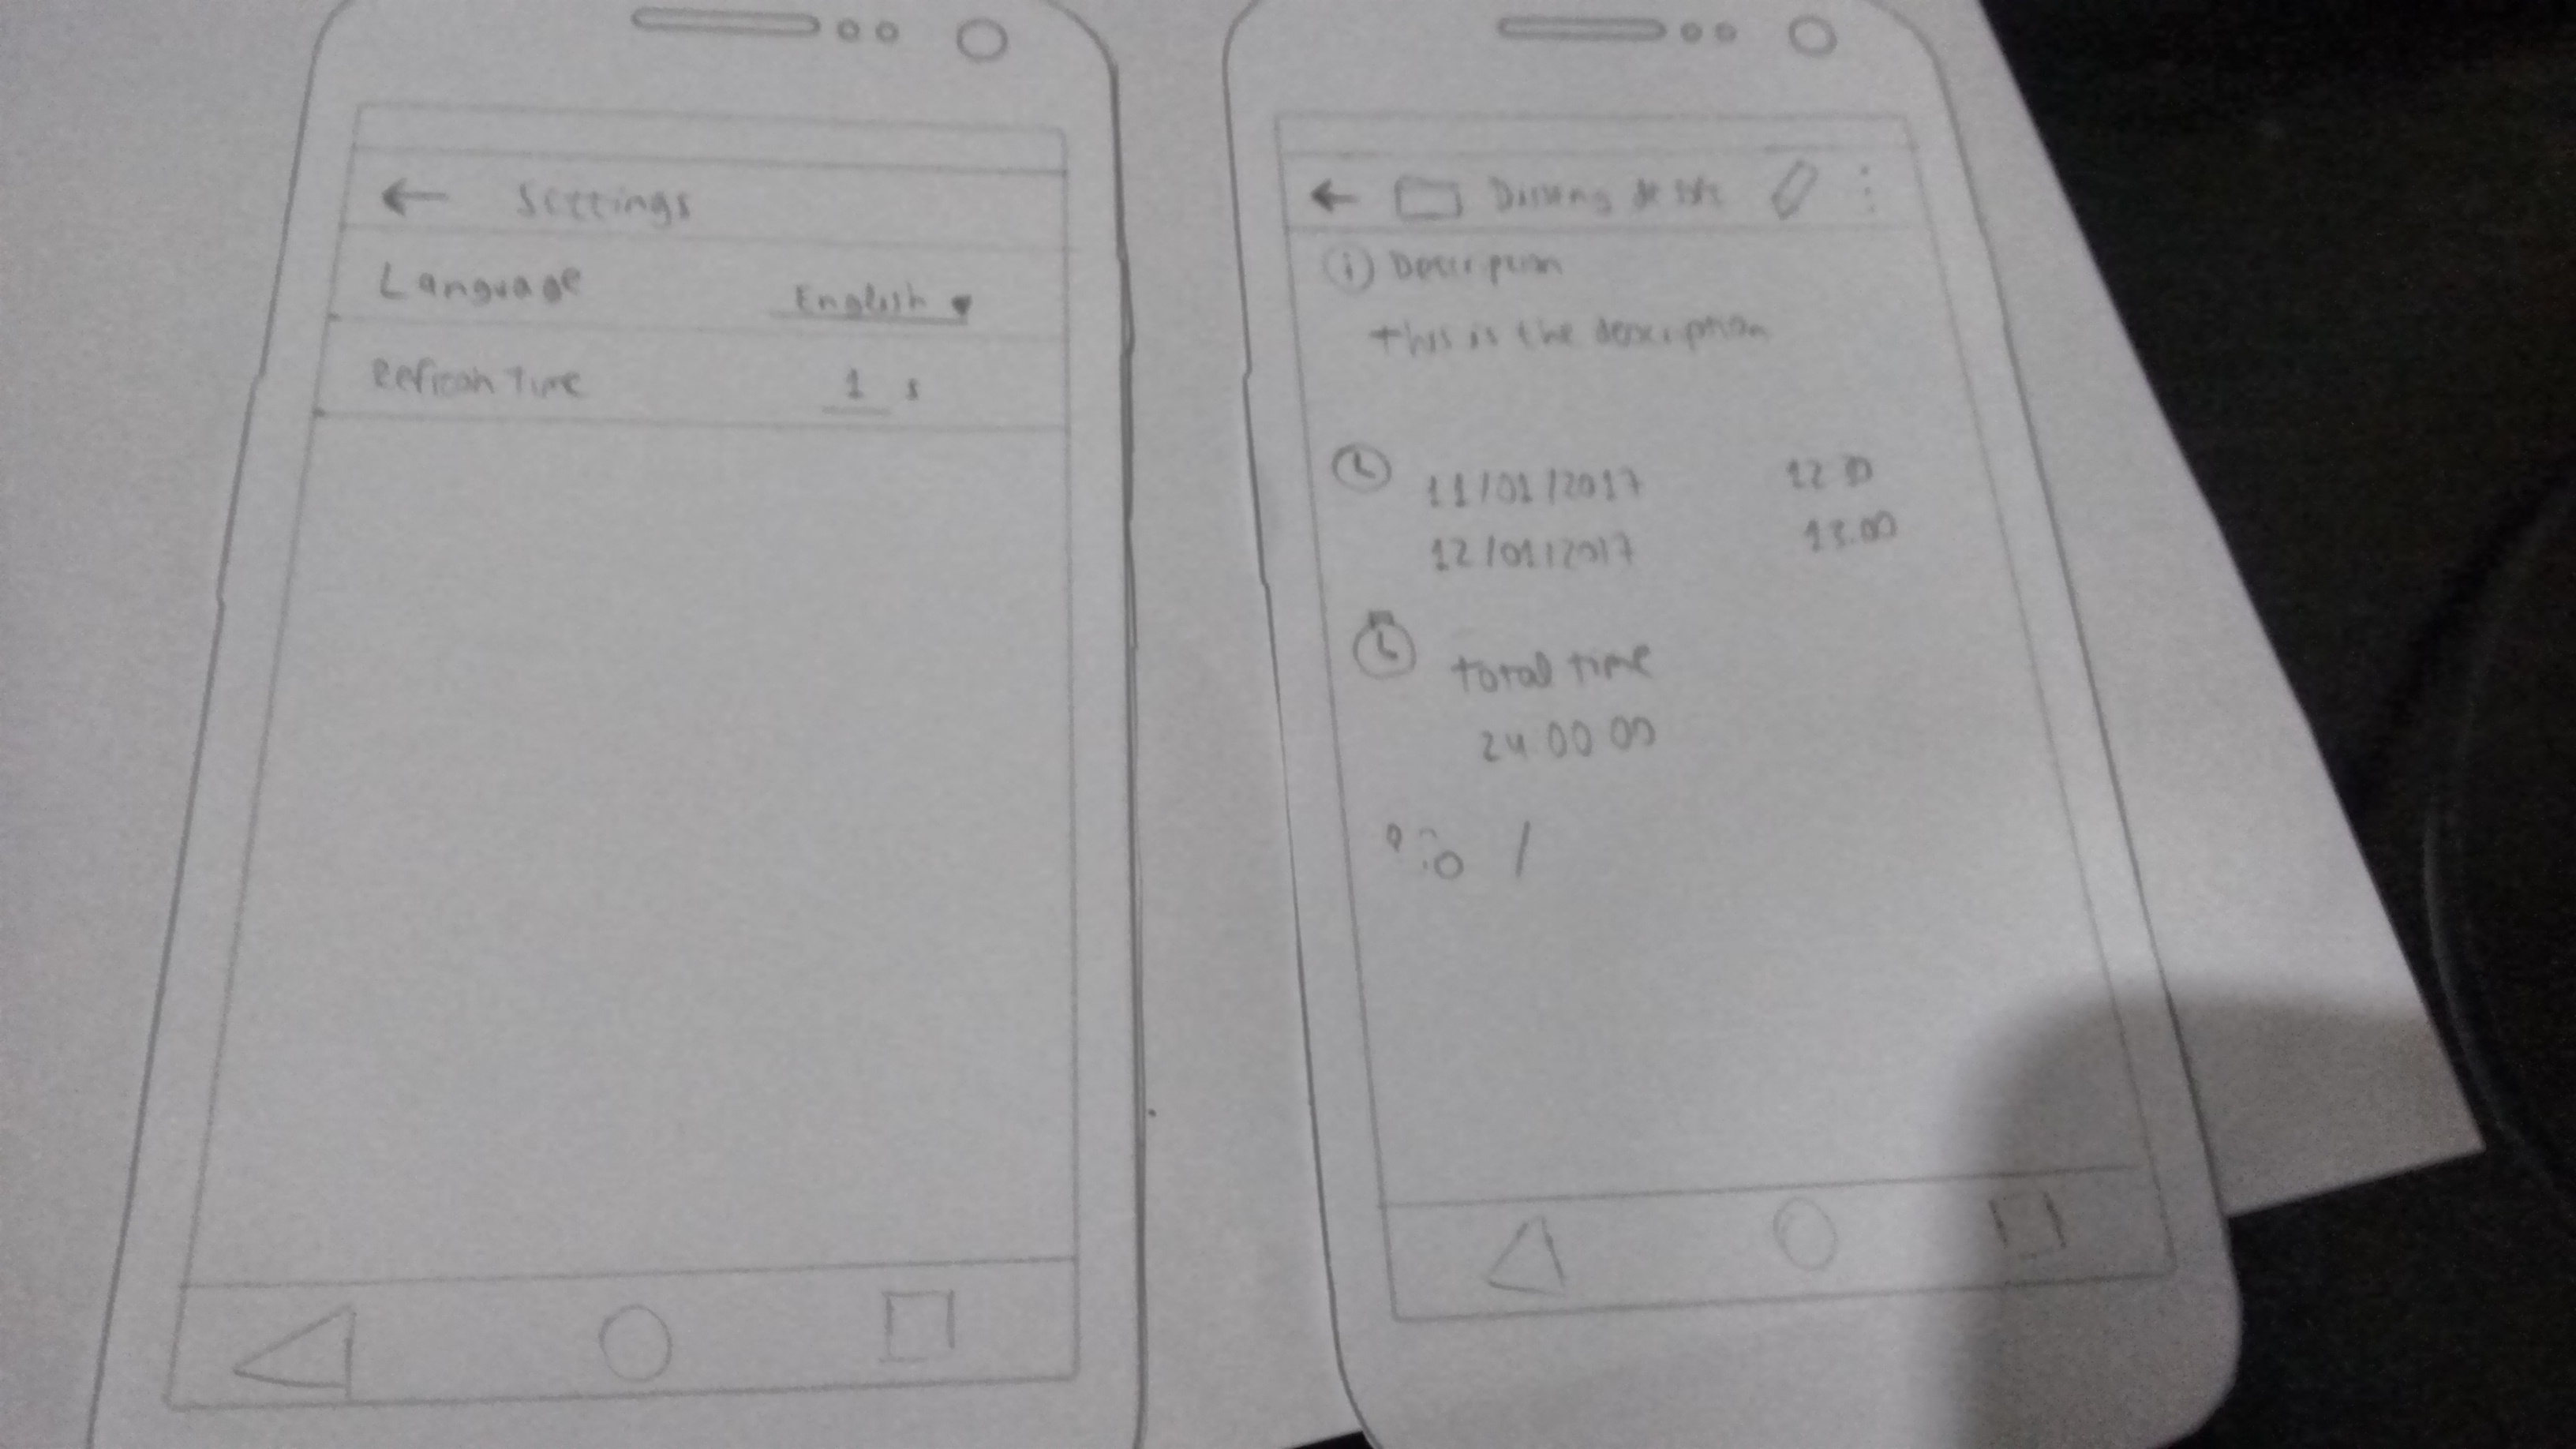 Settings
Language English
Refresh Time 1 s
Description
this is the description
11/01/2017
12/01/2017 13.00
total time
24 00 00